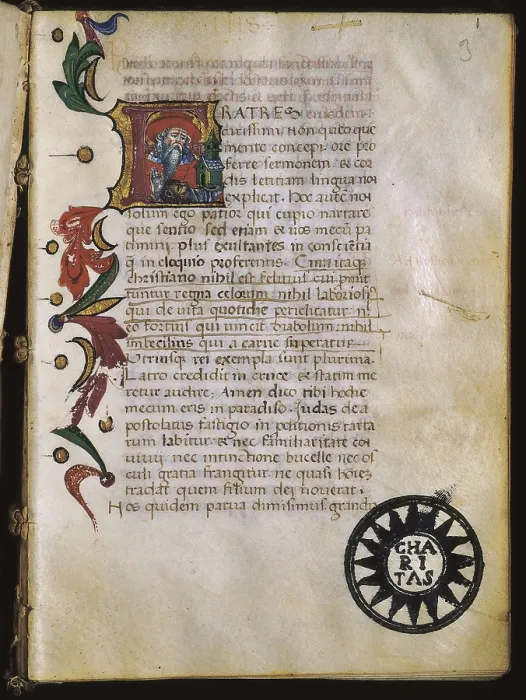 IHS
1
3
FRATRES
carissimi, Non quito que
mente concepi ore pro
ferre sermonem & cor
dis letitiam lingua nõ
explicat. Hoc autẽ nõ
solum ego patior qui cupio narrare
que sentio sed etiam & uos mecũ pa
timini plus exultantes in consciẽtia
q̃ in eloquio proferentis. Cum itaq;
christiano nihil est felitius cui pmit
tuntur regna celorum nihil laboriosi9
qui de uita quotidie periclitatur. ni
eo fortius qui uincit diabolum nihil
imbecilius qui a carne superatur
Utriusq; rei exempla sunt plurima.
Latro credidit in cruce & statim me
retur audire, Amen dico tibi hodie
mecum eris in paradiso. Judas de a
postolatus fastigio in proditionis tarta
rum labitur & nec familiaritate cõ
uiuii nec intinctione bucelle nec os
culi gratia frangitur ne quasi hoĩez
tradat quem filium dei nouerat.
Nos quidem parua dimisimus grandia
CHA
RI
TAS